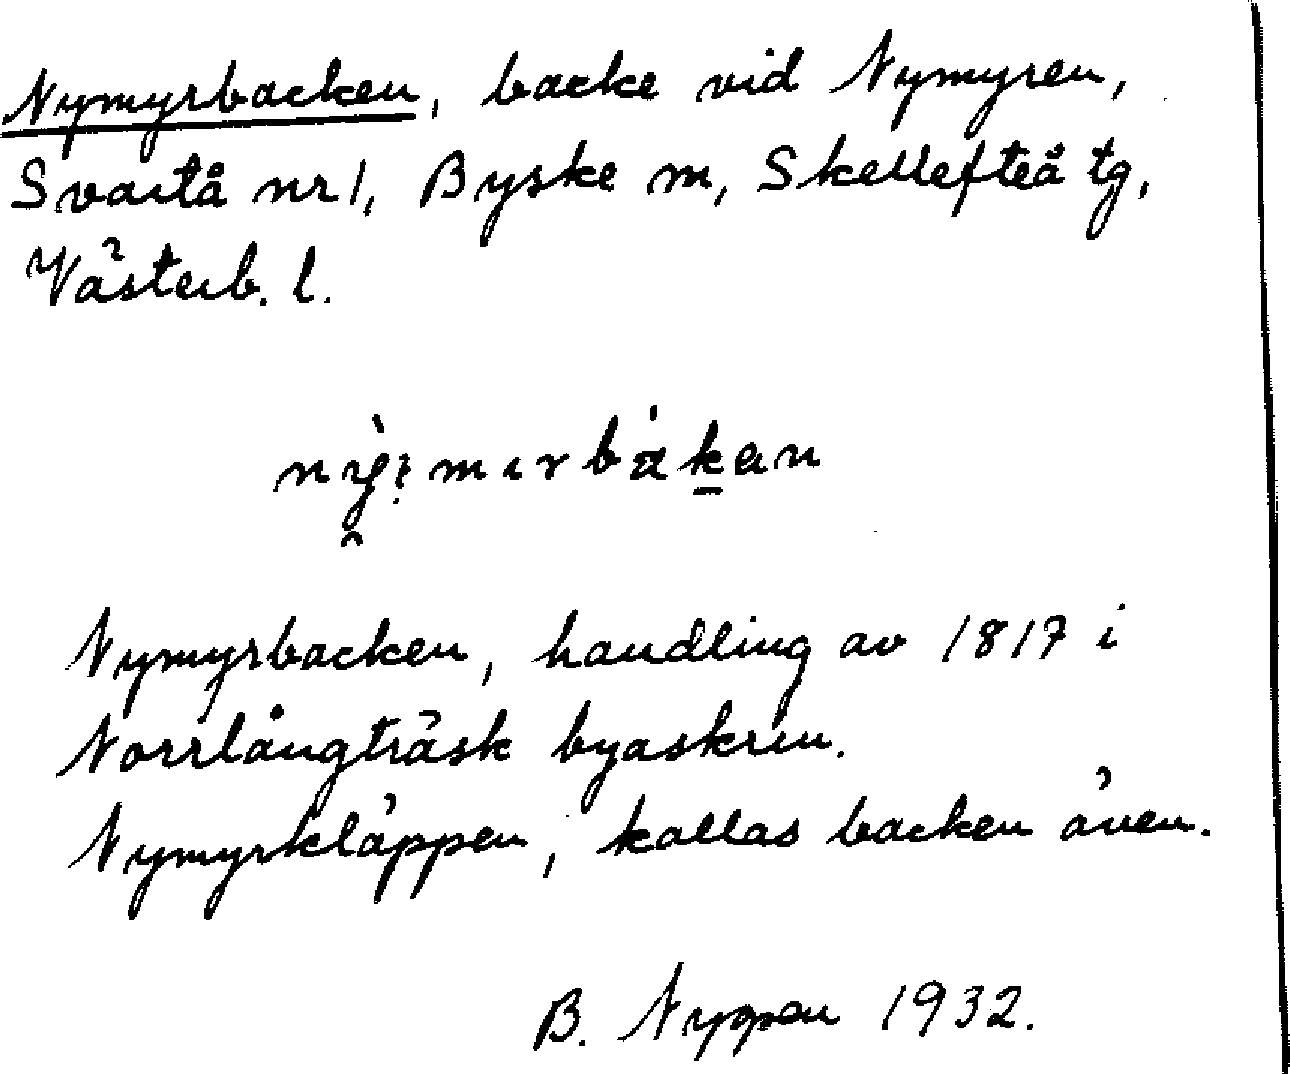 Nymyrbacken, backe vid Nymyren,
Svartå nr 1, Byske sn, Skellefteå tg,
Västerb. l.
Nymyrbacken, handling av 1817 i
Norrlångträsk byaskrin.
Nymyrkläppen, kallas backen även.
B. Nygren 1932.